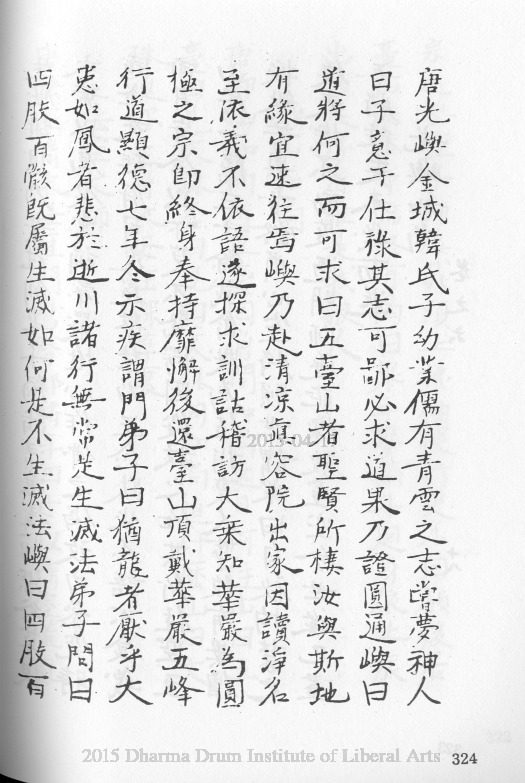 唐光嶼金城韓氏子幼業儒有青雲之志嘗夢神人
曰子意干仕祿其志可鄙必求道果乃證圓通嶼曰
道將何之而可求曰五臺山者聖賢所棲汝與斯地
有緣宜速往焉嶼乃赴清凉真容院出家因讀淨名
至依義不依語遂探求訓詁稽訪大乘知華嚴為圓
極之宗即終身奉持靡懈後還臺山頂戴華嚴五峰
行道顯德七年冬示疾謂門弟子曰猶龍者厭乎大
患如鳳者悲於逝川諸行無常是生滅法弟子問曰
四肢百骸既屬生滅如何是不生滅法嶼曰四肢百
2015 Dharma Drum Institute of Liberal Arts 324